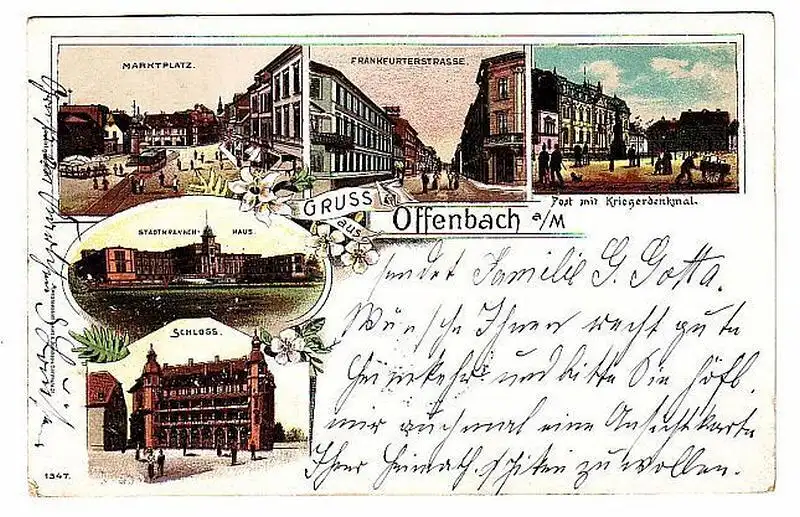 MARKTPLATZ.
FRANKFURTERSTRASSE.
Post mit Kriegerdenkmal.
GRUSS
aus
Offenbach a/M
STADTKRANKEN- HAUS.
SCHLOSS.
sendet Familie G. Gotta.
Wünsche Ihnen recht gute
Heimkehr und bitte Sie höfl.
mir auch mal eine Ansichtkarte
Ihrer Heimath schicken zu wollen.
1347.